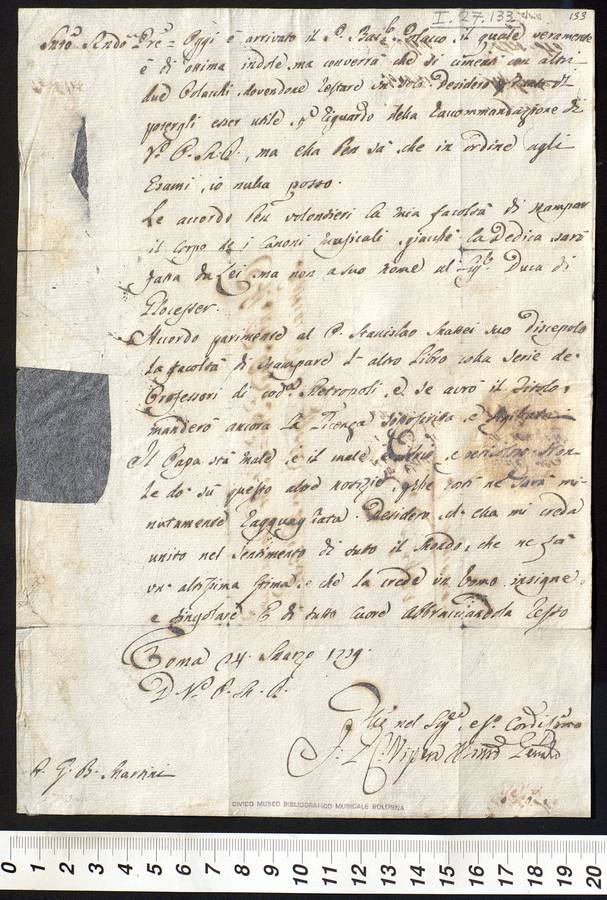 I.27.133
133
Oggi è arrivato il P. Polacco, il quale veramente
è di ottima indole, ma converrà che si cimenti con altri
due Polacchi, dovendone restare un solo. Desidero di
potergli esser utile riguardo della raccommandazione di
V.ª P. M. R., ma ella ben sà che in ordine agli
Esami, io nulla posso.
Le accordo ben volontieri la mia facoltà di stampar
il corpo de i Canoni Musicali, giacchè la Dedica sarà
fatta da Lei, ma non a suo nome al Duca di
Glocester.
Accordo parimente al P. Stanislao Mattei suo discepolo
la facoltà di stampare l'altro Libro colla serie de
Professori di cod.ª Metropoli, e se avrò il Titolo,
manderò ancora la Licenza e
Il Papa stà male, e il male è e Non
le do sù questo altre notizie, perche costì ne sarà mi-
nutamente ragguagliata. Desidero ch' ella mi creda
unito nel sentimento di tutto il Mondo, che ne fà
un' altissima stima, e che la crede un Uomo insigne,
e singolare. E di tutto cuore abbracciandola resto
Roma 24. Marzo
D. V.ª P. M. R.
nel Sig.re
P. G. B. Martini
CIVICO MUSEO BIBLIOGRAFICO MUSICALE BOLOGNA
0 1 2 3 4 5 6 7 8 9 10 11 12 13 14 15 16 17 18 19 20